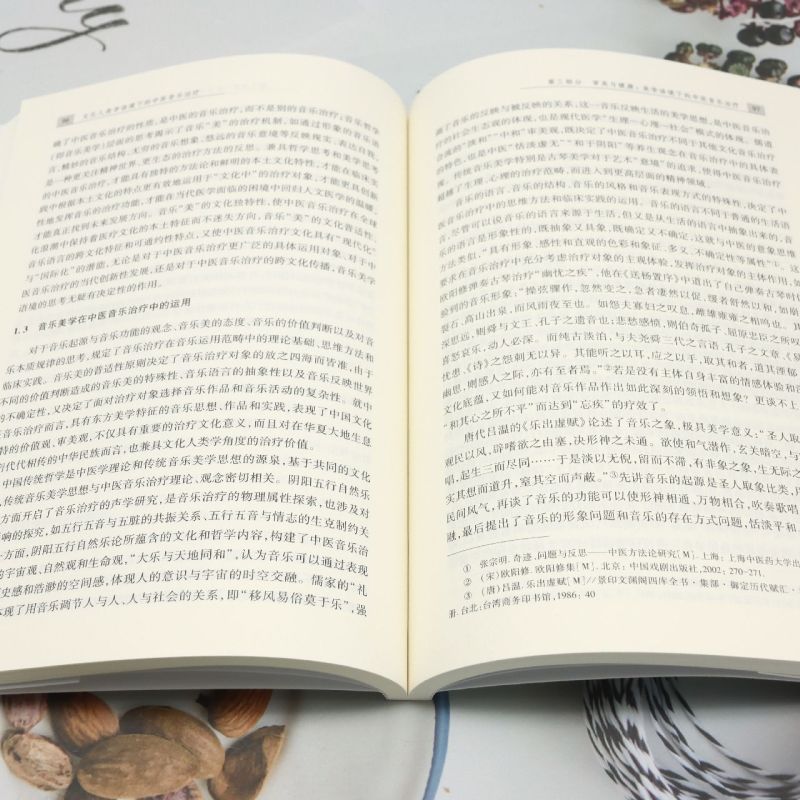 96 文化人类学语境下的中医音乐治疗
确了中医音乐治疗的性质,是中医的音乐治疗,而不是别的音乐治疗;音乐哲学
(即音乐美学)层面的思考揭示了音乐“美”的治疗机制,如通过形象的音乐语
言、精妙的音乐结构、无穷的音乐想象、悠远的音乐意境等反映现实、表达自我,
是一种更注重精神世界、更生态的治疗方法的反思。兼具哲学思考和美学思考
的中医音乐治疗,才能具有独特的方法论和鲜明的本土文化特性,才能在临床实
践中根据本土文化的特点更有效地运用于“文化中”的治疗对象,才能更具创新
性地发挥音乐的治疗功能,才能在当代医学面临的困境中回归人文医学的温暖,
才能真正找到未来发展方向。音乐“美”的文化独特性,使中医音乐治疗在全球
化浪潮中保持着医疗文化的本土特征而不迷失方向,音乐“美”的文化普适性、
音乐语言的跨文化特征和可通约性特点,又使中医音乐治疗文化具有“现代化”
与“国际化”的潜能,无论是对于中医音乐治疗更广泛的具体运用对象、对于中
医音乐治疗的当代创新性发展,还是对于中医音乐治疗的跨文化传播,音乐美学
语境的思考无疑有决定性的作用。
1.3 音乐美学在中医音乐治疗中的运用
对于音乐起源与音乐功能的观念、音乐美的态度、音乐的价值判断以及对音
乐本质规律的思考,规定了音乐治疗在音乐运用范畴中的理论基础、思维方法和
临床实践。音乐美的普适性原则决定了音乐治疗对象的放之四海而皆准,由于
不同的价值判断造成的音乐美的特殊性、音乐语言的抽象性以及音乐反映世界
的不确定性,又决定了面对治疗对象选择音乐作品和音乐活动的复杂性。就中
音乐治疗而言,具有东方美学特征的音乐思想、作品和实践,表现了中国文化
特的价值观、审美观,不仅具有重要的治疗文化意义,而且对在华夏大地生息
代代相传的中华民族而言,也兼具文化人类学角度的治疗价值。
中国传统哲学是中医学理论和传统音乐美学思想的源泉,基于共同的文化
传统音乐美学思想与中医音乐治疗理论、观念密切相关。阴阳五行自然乐
方面开启了音乐治疗的声学研究,是音乐治疗的物理属性探索,也涉及对
响的探索,如五行五音与五脏的共振关系、五行五音与情志的生克制约关
一方面,阴阳五行自然乐论所蕴含的文化和哲学内容,构建了中医音乐治
的宇宙观、自然观和生命观,“大乐与天地同和”,认为音乐可以通过表现
史感和浩渺的空间感,体现人的意识与宇宙的时空交融。儒家的“礼
体现了用音乐调节人与人、人与社会的关系,即“移风易俗莫于乐”,强
第二部分 审美与健康:美学语境下的中医音乐治疗 97
了音乐的反映与被反映的关系,这一音乐反映生活的美学思想,是中医音乐治
疗的社会生态观的体现,也是现代医学“生理—心理—社会”模式的体现。儒道
会流的“淡和”“中和”审美观,既决定了中医音乐治疗不同于其他文化音乐治疗
的特色,也是中医“恬淡虚无”“和于阴阳”等养生观念在音乐治疗中的具体表
现。传统音乐美学特别是古琴美学对于艺术“意境”的追求,使得中医音乐治疗
超越了生理、心理的治疗范畴,而进入到更高层面的精神领域。
音乐的语言、音乐的结构、音乐的风格和音乐表现方式的特殊性,决定了中
医音乐治疗中的思维方法和临床实践的运用。音乐的语言不同于普通的生活语
言,尽管可以说音乐的语言来源于生活,但又是从生活的语言中抽象出来的,音
乐的语言是形象性的,既抽象又具象,既确定又不确定,这就与中医的意象思维
方法类似,“具有形象、感性和直观的色彩和象征、多义、不确定性等属性”①。这
要求在音乐治疗中充分考虑治疗对象的主观体验,发挥治疗对象的主体作用,如
欧阳修弹奏古琴治疗“幽忧之疾”,他在《送杨寘序》中道出了自己弹奏古琴时体
验到的音乐形象:“操弦骤作,忽然变之,急者凄然以促,缓者舒然以和,如崩崖
裂石,高山出泉,而风雨夜至也。如怨夫寡妇之叹息,雌雄雍雍之相鸣也。其忧
深思远,则舜与文王、孔子之遗音也;悲愁感愤,则伯奇孤子、屈原忠臣之所叹也。
喜怒哀乐,动人必深。而纯古淡泊,与夫尧舜三代之言语、孔子之文章、《易》之
忧患、《诗》之怨刺无以异。其能听之以耳,应之以手,取其和者,道其湮郁,写其
幽思,则感人之际,亦有至者焉。”②若是没有主体自身丰富的情感体验和深厚的
文化底蕴,又如何能对音乐作品作出如此深刻的领悟和想象?更谈不上
“和其心之所不平”而达到“忘疾”的疗效了。
唐代吕温的《乐出虚赋》论述了音乐之象,极具美学意义:“圣人取
观民以风,辟嗜欲之由塞,决形神之未通。欲使和气潜作,玄关暗空,与
唱,起生三而尽同……于是淡以无倪,留而不滞,有非象之象,生无际之
实其想而道升,窒其空而声蔽。”③先讲音乐的起源是圣人取象比类,
民间风气,再谈了音乐的功能可以使形神相通、万物相合,吹奏歌唱
融,最后提出了音乐的形象问题和音乐的存在方式问题,恬淡平和
① 张宗明.奇迹、问题与反思——中医方法论研究[M].上海:上海中医药大学出
② (宋)欧阳修.欧阳修集[M].北京:中国戏剧出版社,2002:270-271.
③ (唐)吕温.乐出虚赋[M]//景印文渊阁四库全书·集部·御定历代赋汇·
册.台北:台湾商务印书馆,1986:40